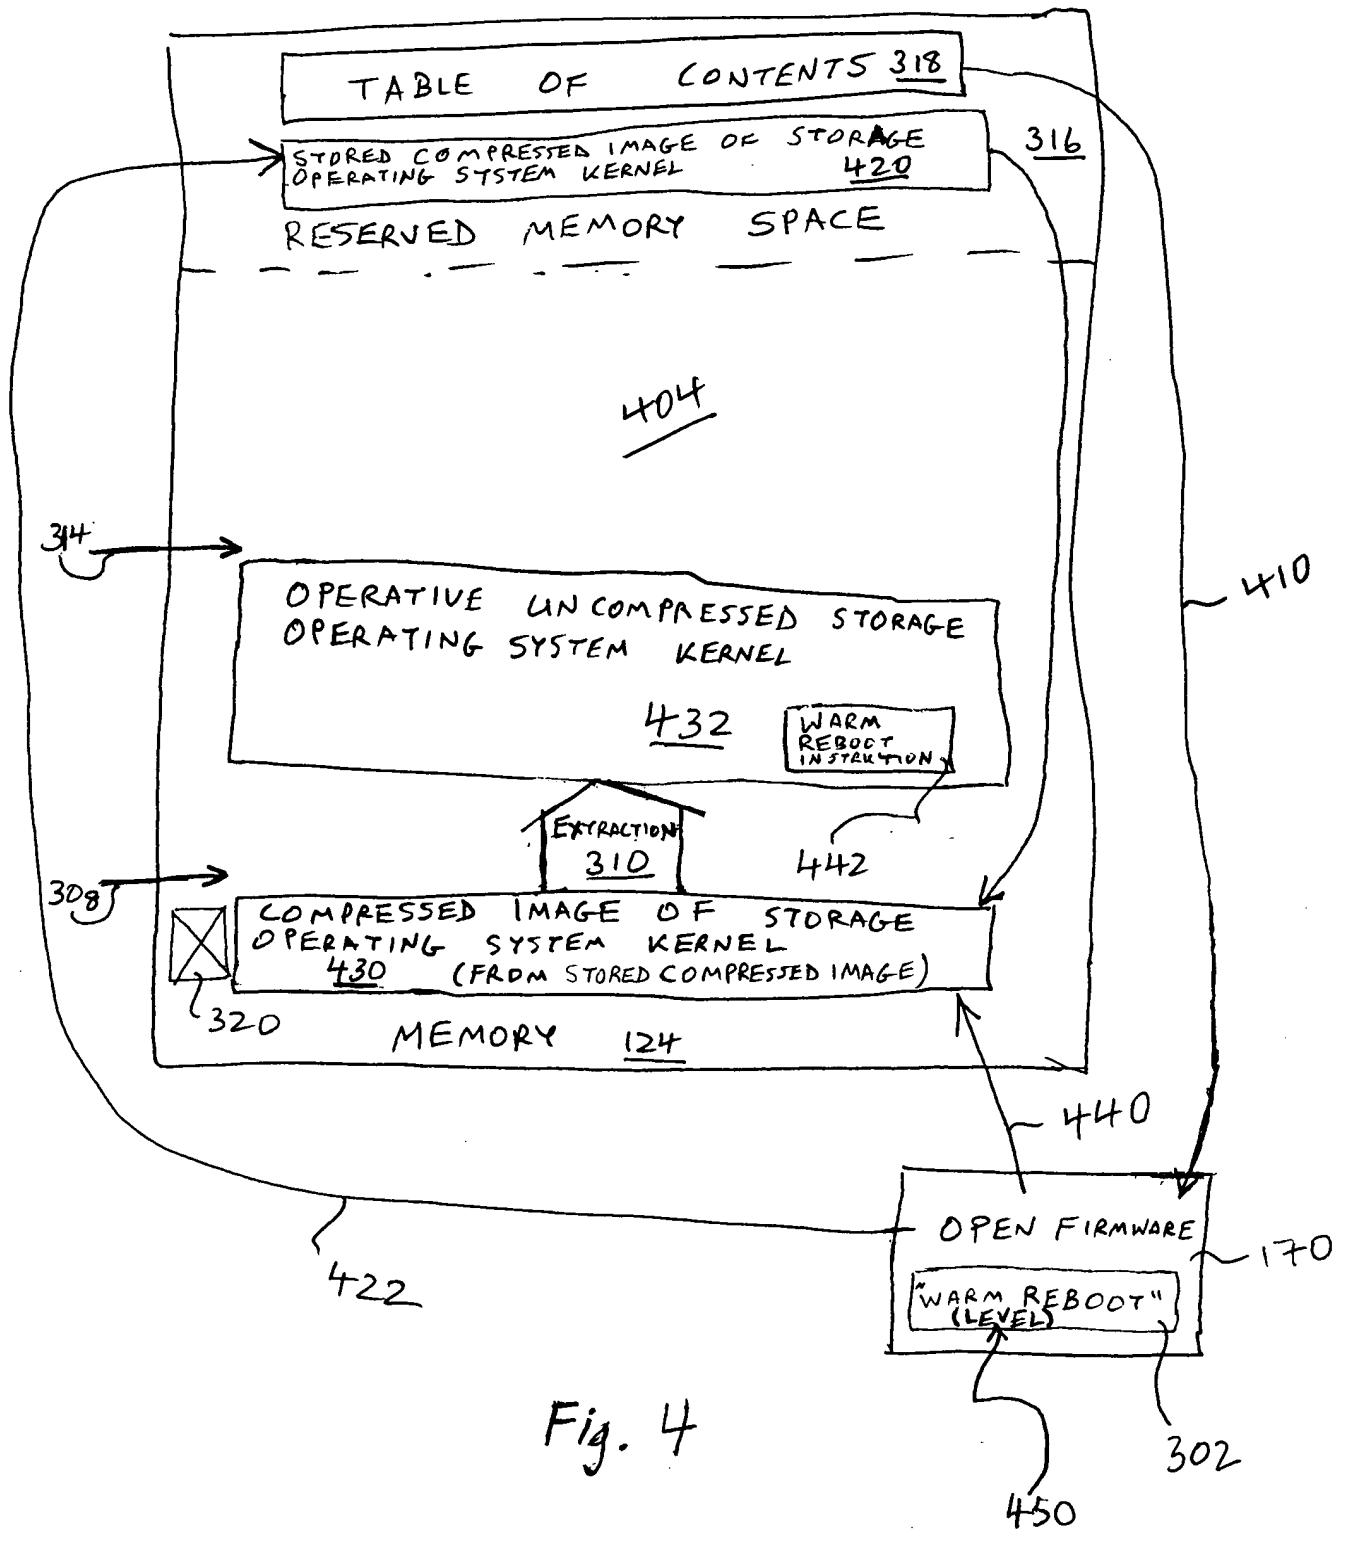 TABLE OF CONTENTS 318
STORED COMPRESSED IMAGE OF STORAGE
OPERATING SYSTEM KERNEL 420
316
RESERVED MEMORY SPACE
404
314
410
OPERATIVE UNCOMPRESSED STORAGE
OPERATING SYSTEM KERNEL
432
WARM
REBOOT
INSTRUTION
442
EXTRACTION
310
308
COMPRESSED IMAGE OF STORAGE
OPERATING SYSTEM KERNEL
430 (FROM STORED COMPRESSED IMAGE)
320
MEMORY 124
440
OPEN FIRMWARE
170
"WARM REBOOT"
(LEVEL)
422
302
450
Fig. 4